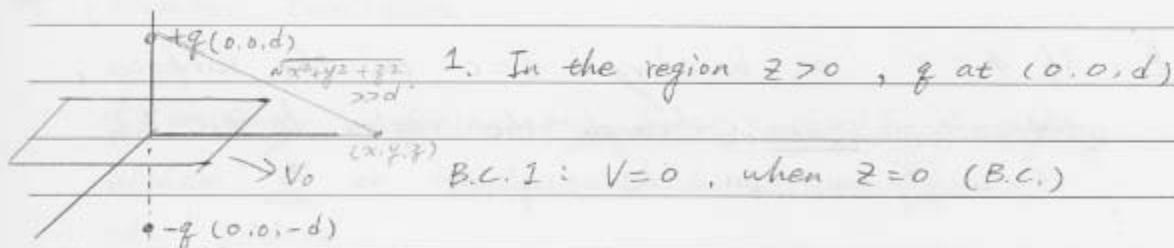 +q (0,0,d)
√x²+y²+z²
>>d
1. In the region Z>0 , q at (0,0,d)
(x,y,z)
V₀
B.C.1 : V=0 , when Z=0 (B.C.)
-q (0,0,-d)